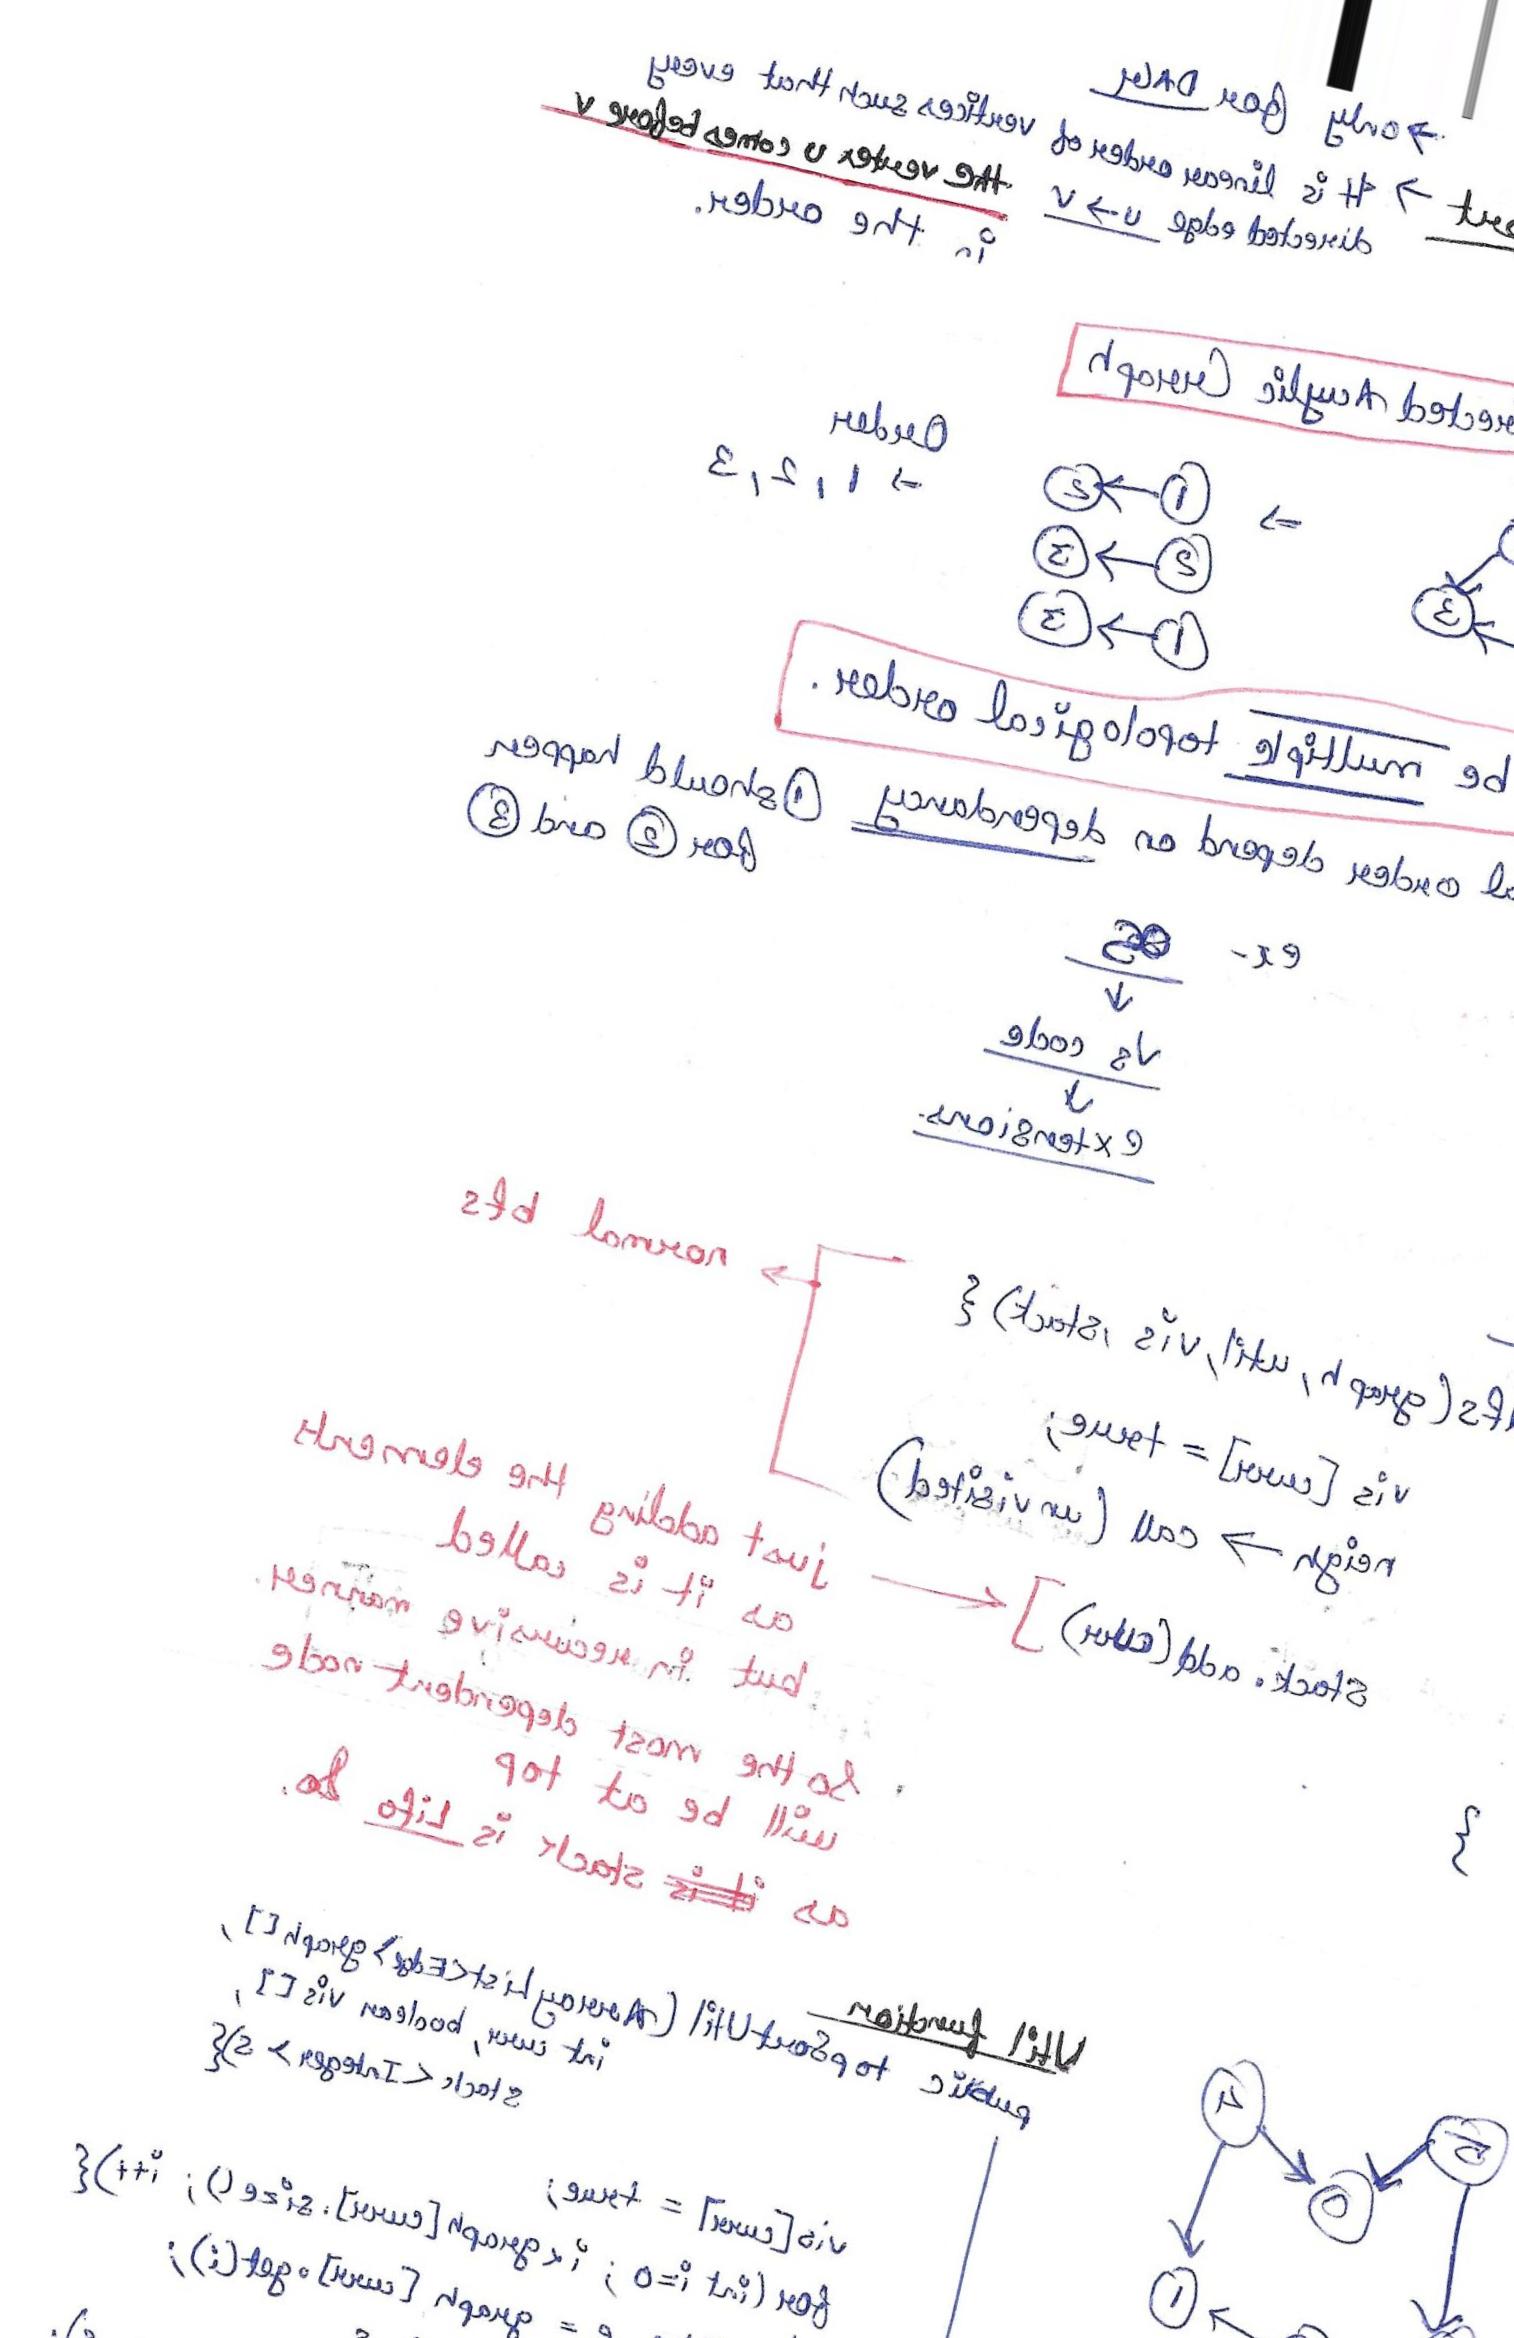 → only for DAGs
→ It is linear order of vertices such that every
directed edge u→v the vertex u comes before v
in the order.
Acyclic Graph
Order
1 → 2 ⇒ → 1, 2, 3
2 → 3
1 → 3
3
be multiple topological order.
order depend on dependancy 1 should happen
for 2 and 3
ex-
Vs code
↓
extensions.
normal
(graph, util, vis, stack) {
vis [curr] = true;
neigh → call (unvisited)
stack.add(curr)
}
just adding the elements
as it is called
but in recursive manner.
So the most dependent node
will be at top
as it is stack is Lifo So.
Util function
public topSortUtil (ArrayList<Edge> graph[],
int curr, boolean vis[],
stack<Integer> s){
vis[curr] = true;
for (int i=0; i<graph[curr].size(); i++){
e = graph[curr].get(i);
4
5
0
1